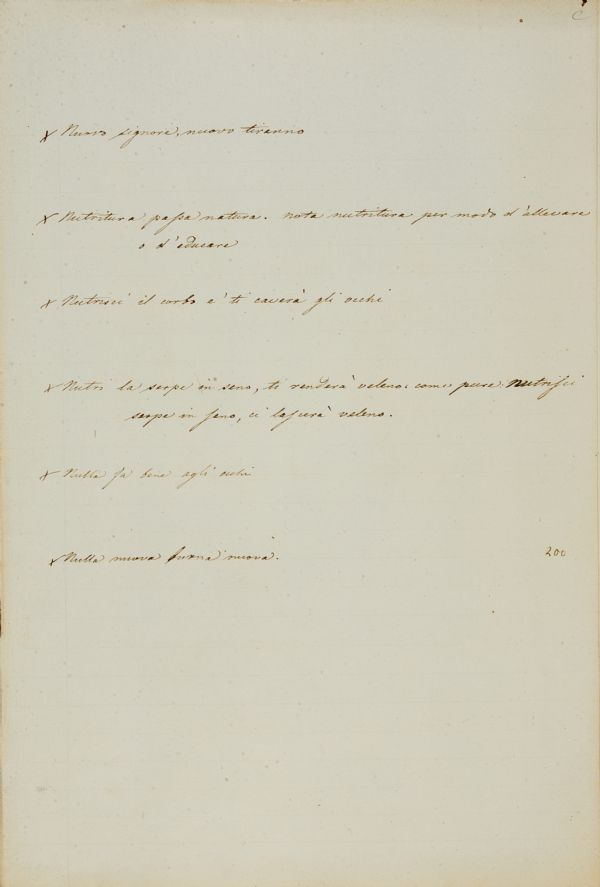 C
x Nuovo signore, nuovo tiranno
x Nutritura paſsa natura. nota nutritura per modo d'allevare
o d'educare
x Nutrisci il corbo e' ti caverà gli occhi
x Nutri la serpe in seno, ti renderà veleno: come pure. Nutriſci
serpe in ſeno, ci laſcerà veleno.
x Nulla fa bene agli occhi
x Nulla nuova buona nuova.
200